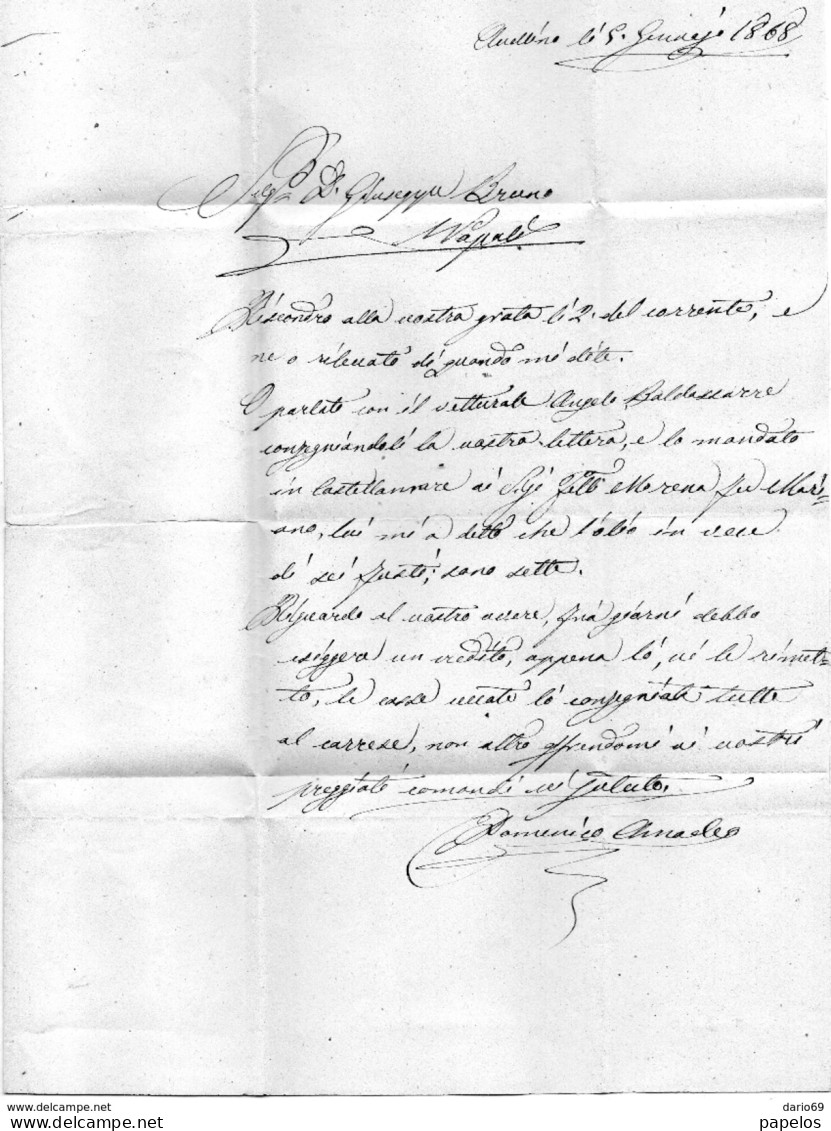 Avellino li 5. Gennajo 1868
Sigr. D. Giuseppe Bruno
Napoli
Riscondro alla vostra grata li 2. del corrente, e
ne o rilevato di quando mi dite.
O parlato con il vetturale Angelo Baldassarre
consegniandoli la vostra lettera, e lo mandato
in Castellammare ai Sigi Flli Morena fu Mari=
ano, lui mi a detto che l'olio in vece
di sei fusti, sono sette.
Riguardo al vostro avere, frà giorni debbo
esiggere un credito, appena lò, vi le rimet=
to, le casse vecate lò consegniate tutte
al carrese, non altro offrendomi ai vostri
preggiati comandi vi saluto.
Domenico Amadeo
www.delcampe.net
dario69
www.delcampe.net
papelos